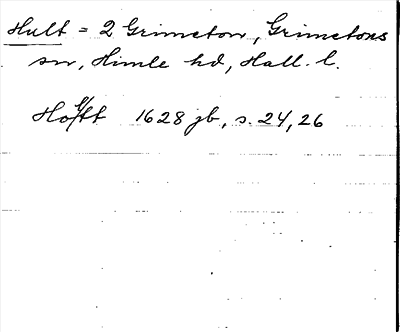 Hult = 2 Grimeton, Grimetons
sn, Himle hd, Hall. l.
1628 jb, s. 24, 26